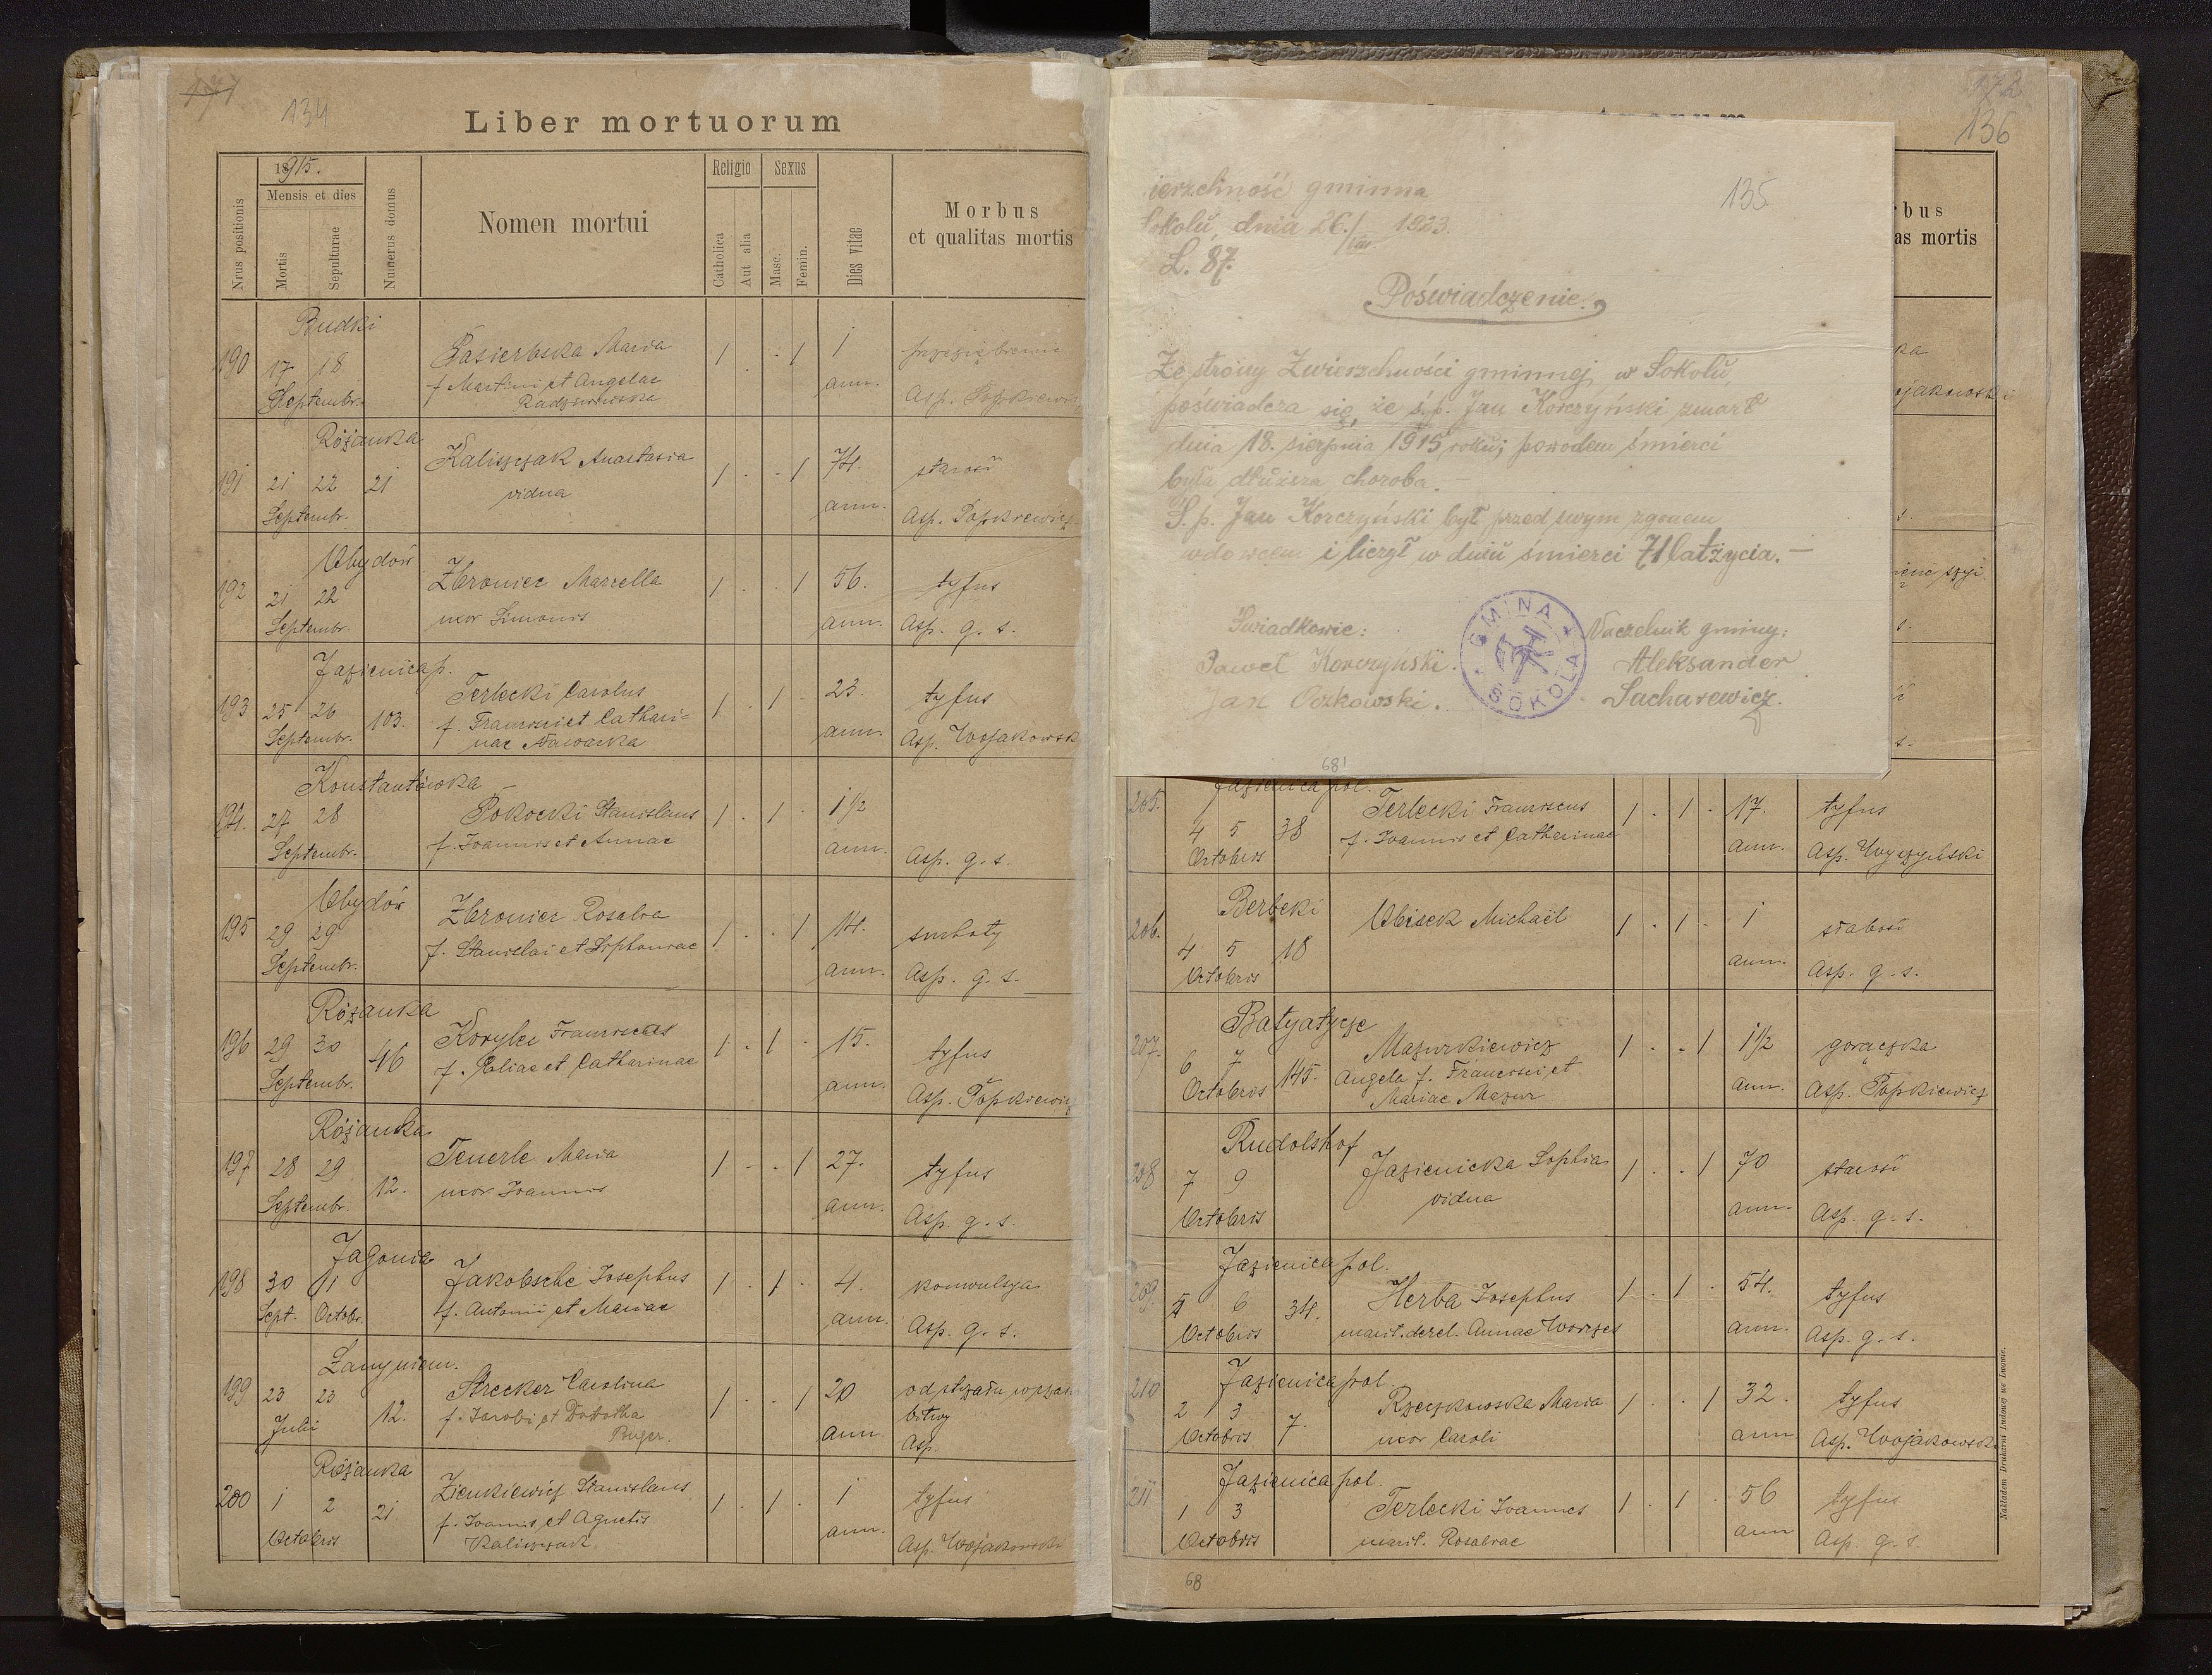 171
134
Liber mortuorum
1915.
Mensis et dies
Nrus positionis
Mortis
Sepulturae
Numerus domus
Nomen mortui
Religio
Catholica
Aut alia
Sexus
Masc.
Femin.
Dies vitae
Morbus
et qualitas mortis
Budki
190 17 18 Pasierbska Maria 1 . . 1 1 przeziębienie
Septembr. f. Martini et Angelae ann. Asp. Popkiewicz
Różanka
191 21 22 21 Kaliszczak Anastasia 1 . . 1 74. starość
Septembr. vidua ann. Asp. Popkiewicz
Ubydów
192 21 22 Zbroniec Marcella 1 . . 1 56. tyfus
Septembr. uxor Simonis ann. Asp. g. s.
Jazienica p.
193 25 26 103. Terlecki Carolus 1 . 1 . 23. tyfus
Septembr. f. Francisci et Cathari=
nae Nawarka ann. Asp. Wojakowsk
Konstantówka
194. 27 28 Pokocki Stanislaus 1 . 1 . 1½
Septembr. f. Joannis et Annae ann. Asp. g. s.
Ubydów
195 29 29 Zbroniec Rosalia 1 . . 1 14. suchoty
Septembr. f. Stanislai et Stephaniae ann. Asp. g. s.
Różanka
196 29 30 46 Koryluc Franciscus 1 . 1 . 15. tyfus
Septembr. f. Eliae et Catharinae ann. Asp. Popkiewicz
Różanka
197 28 29 12. Tenerle Maria 1 . . 1 27. tyfus
Septembr. uxor Joannis ann. Asp. g. s.
Jagonia
198 30 1 Jakobsche Josephus 1 . 1 . 4. konwulsya
Sept. Octobr. f. Antonii et Mariae ann. Asp. g. s.
199 23 23 12. Strecker Carolina 1 . . 1 20 od strzału w czasie
Julii f. Jacobi et Dorotha bitwy
Buger. ann. Asp.
Różanka
200 1 2 21 Zienkiewicz Stanislaus 1 . 1 . 1 tyfus
Octobris f. Joannis et Agnetis
Kaliszczak ann. Asp. Wojakowski
172
136
135
ierzchność gminna
Sokolu, dnia 26./VIII. 1923.
L. 87.
Poświadczenie.
Ze strony Zwierzchności gminnej w Sokolu,
poświadcza się, że ś.p. Jan Korczyński zmarł
dnia 18. sierpnia 1915 roku; powodem śmierci
była dłuższa choroba. –
Ś. p. Jan Korczyński był przed swym zgonem
wdowcem i liczył w dniu śmierci 71 lat życia. –
Świadkowie: Naczelnik gminy:
Paweł Korczyński. Aleksander
Jan Oczkowski. Sacharewicz.
GMINA SOKOLA
681
bus
as mortis
ojakowski
Jazienica pol.
205. 4 5 38 Terlecki Franciscus 1 . 1 . 17. tyfus
Octobris f. Joannis et Catharinae ann. Asp. Wyczyński
Berbeki
206. 4 5 18 Ubisek Michaël 1 . 1 . 1 słabość
Octobris ann. Asp. g. s.
Batyatycze
207. 6 7 145. Mazurkiewicz 1 . . 1 1½ gorączka
Octobris Angela f. Francisci et
Mariae Mazur ann. Asp. Popkiewicz
Rudolshof
208 7 9 Jazienicka Sophia 1 . . 1 70 starość
Octobris vidua ann. Asp. g. s.
Jazienica pol.
209. 5 6 34. Herba Josephus 1 . 1 . 54. tyfus
Octobris marit. derel. Annae Worszes ann. Asp. g. s.
Jazienica pol.
210 2 3 7. Rzeczkowska Maria 1 . . 1 32. tyfus
Octobris uxor Caroli ann Asp. Wojakowski
Jazienica pol.
211 1 3 Terlecki Joannes 1 . 1 . 56 tyfus
Octobris marit. Rosaliae ann Asp. g. s.
Nakładem Drukarni Ludowej we Lwowie.
68